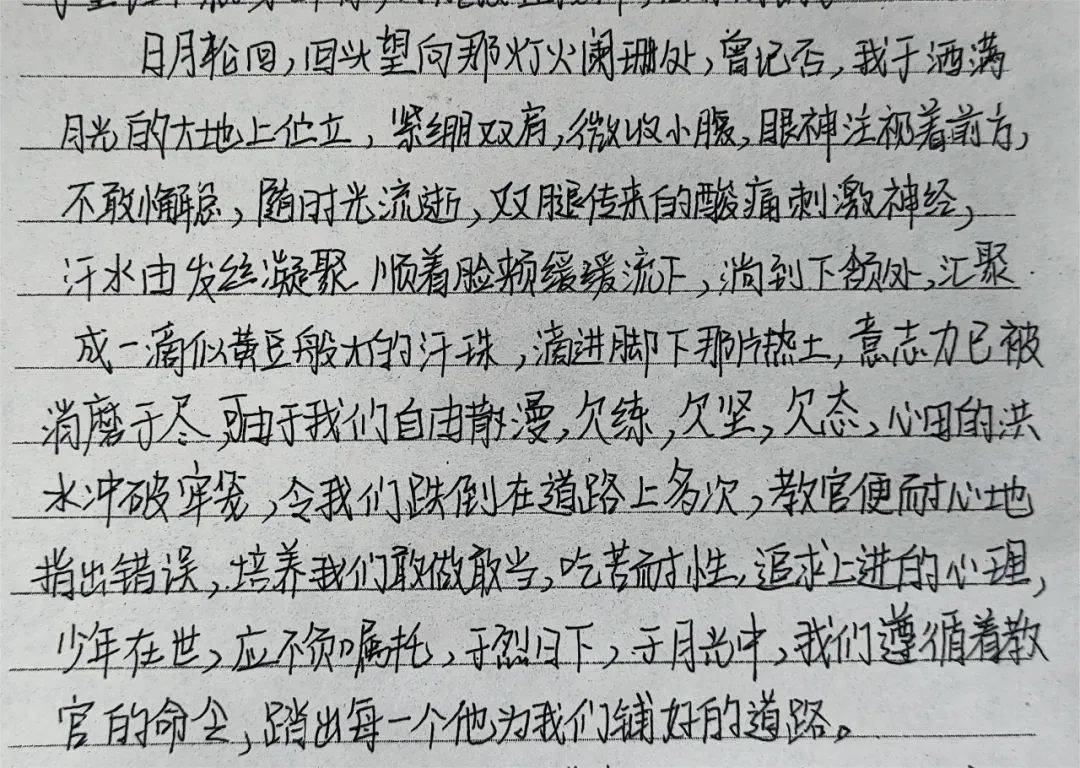 日月轮回,回头望向那灯火阑珊处,曾记否,我于洒满
月光的大地上伫立,紧绷双肩,微收小腹,眼神注视着前方,
不敢懈怠,随时光流逝,双腿传来的酸痛刺激神经,
汗水由发丝凝聚.顺着脸颊缓缓流下,淌到下颌处,汇聚
成一滴似黄豆般大的汗珠,滴进脚下那片热土,意志力已被
消磨于尽,可由于我们自由散漫,欠练,欠坚,欠态,心田的洪
水冲破牢笼,令我们跌倒在道路上多次,教官便耐心地
指出错误,培养我们敢做敢当,吃苦耐性,追求上进的心理,
少年在世,应不负嘱托,于烈日下,于月光中,我们遵循着教
官的命令,踏出每一个他为我们铺好的道路。